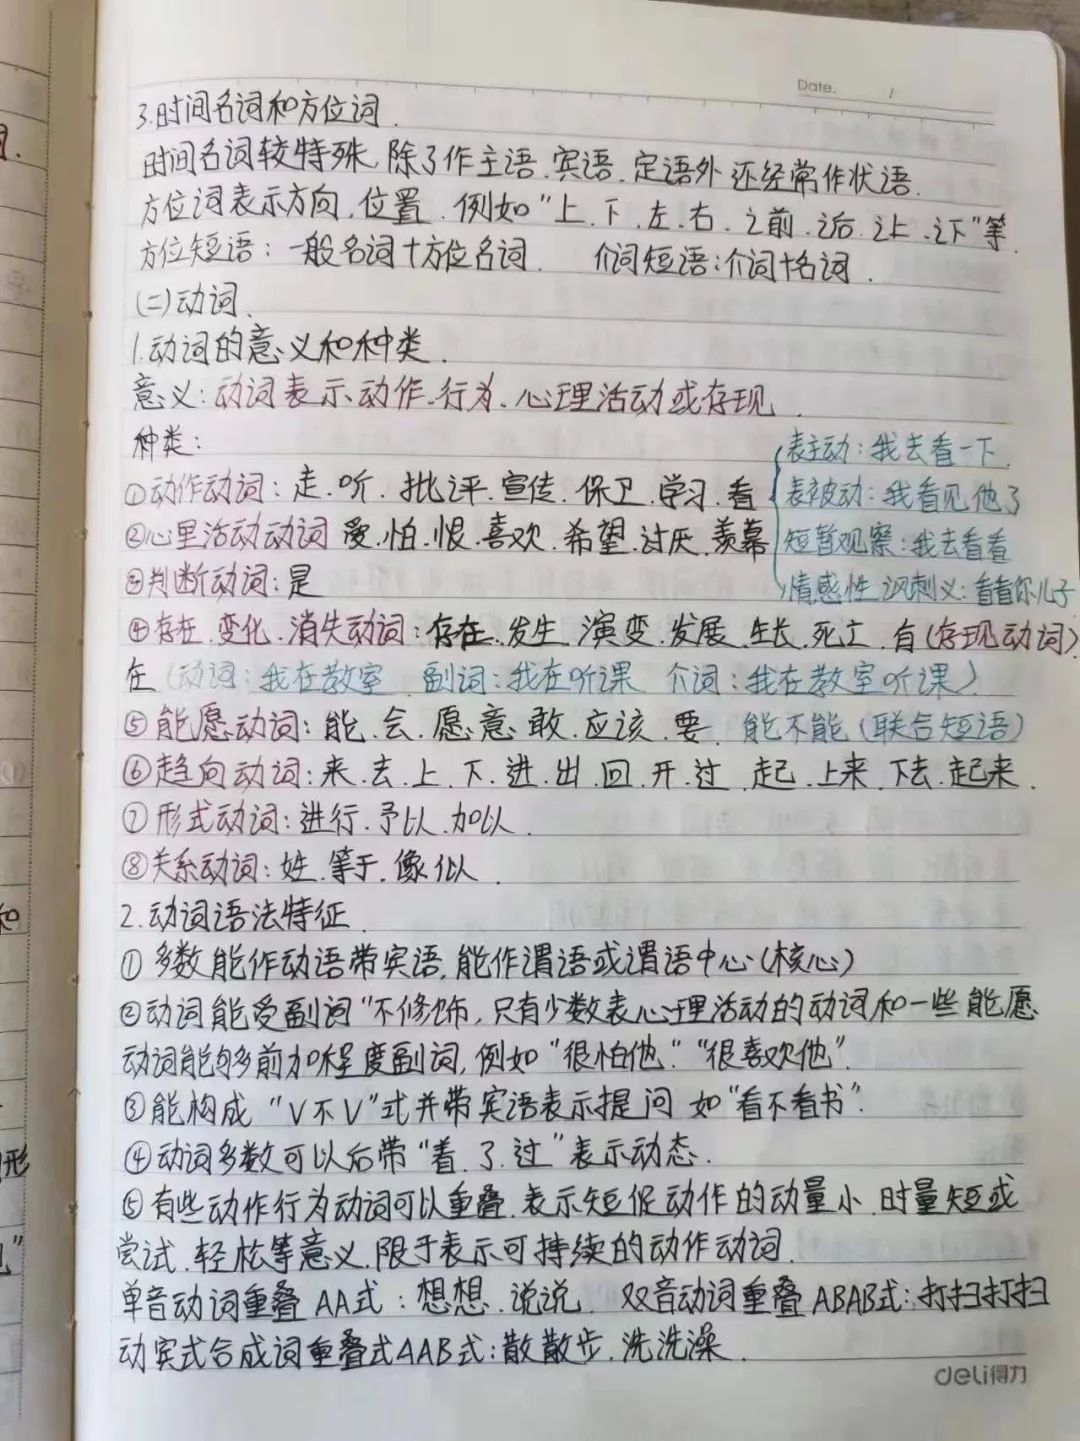 Date. /
3.时间名词和方位词.
时间名词较特殊,除了作主语.宾语.定语外还经常作状语.
方位词表示方向.位置.例如"上.下.左.右.之前.之后.之上.之下"等.
方位短语:一般名词+方位名词. 介词短语:介词+名词.
(二)动词.
1.动词的意义和种类.
意义:动词表示动作.行为.心理活动或存现.
种类:
①动作动词:走.听.批评.宣传.保卫.学习.看
表主动:我去看一下.
表被动:我看见他了
短暂观察:我去看看
情感性 讽刺义:看看你儿子
②心里活动动词 爱.怕.恨.喜欢.希望.讨厌.羡慕
③判断动词:是
④存在.变化.消失动词:存在.发生.演变.发展.生长.死亡.有(存现动词)
在(动词:我在教室 副词:我在听课 介词:我在教室听课)
⑤能愿动词:能.会.愿意.敢.应该.要. 能不能(联合短语)
⑥趋向动词:来.去.上.下.进.出.回.开.过.起.上来.下去.起来.
⑦形式动词:进行.予以.加以.
⑧关系动词:姓.等于.像.似.
2.动词语法特征.
①多数能作动语带宾语,能作谓语或谓语中心(核心)
②动词能受副词"不修饰,只有少数表心理活动的动词和一些能愿
动词能够前加程度副词,例如"很怕他""很喜欢他".
③能构成"V不V"式并带宾语表示提问 如"看不看书".
④动词多数可以后带"着.了.过"表示动态.
⑤有些动作行为动词可以重叠.表示短促动作的动量小.时量短或
尝试.轻松等意义.限于表示可持续的动作动词.
单音动词重叠AA式:想想.说说. 双音动词重叠ABAB式:打扫打扫
动宾式合成词重叠式AAB式:散散步.洗洗澡.
deli得力